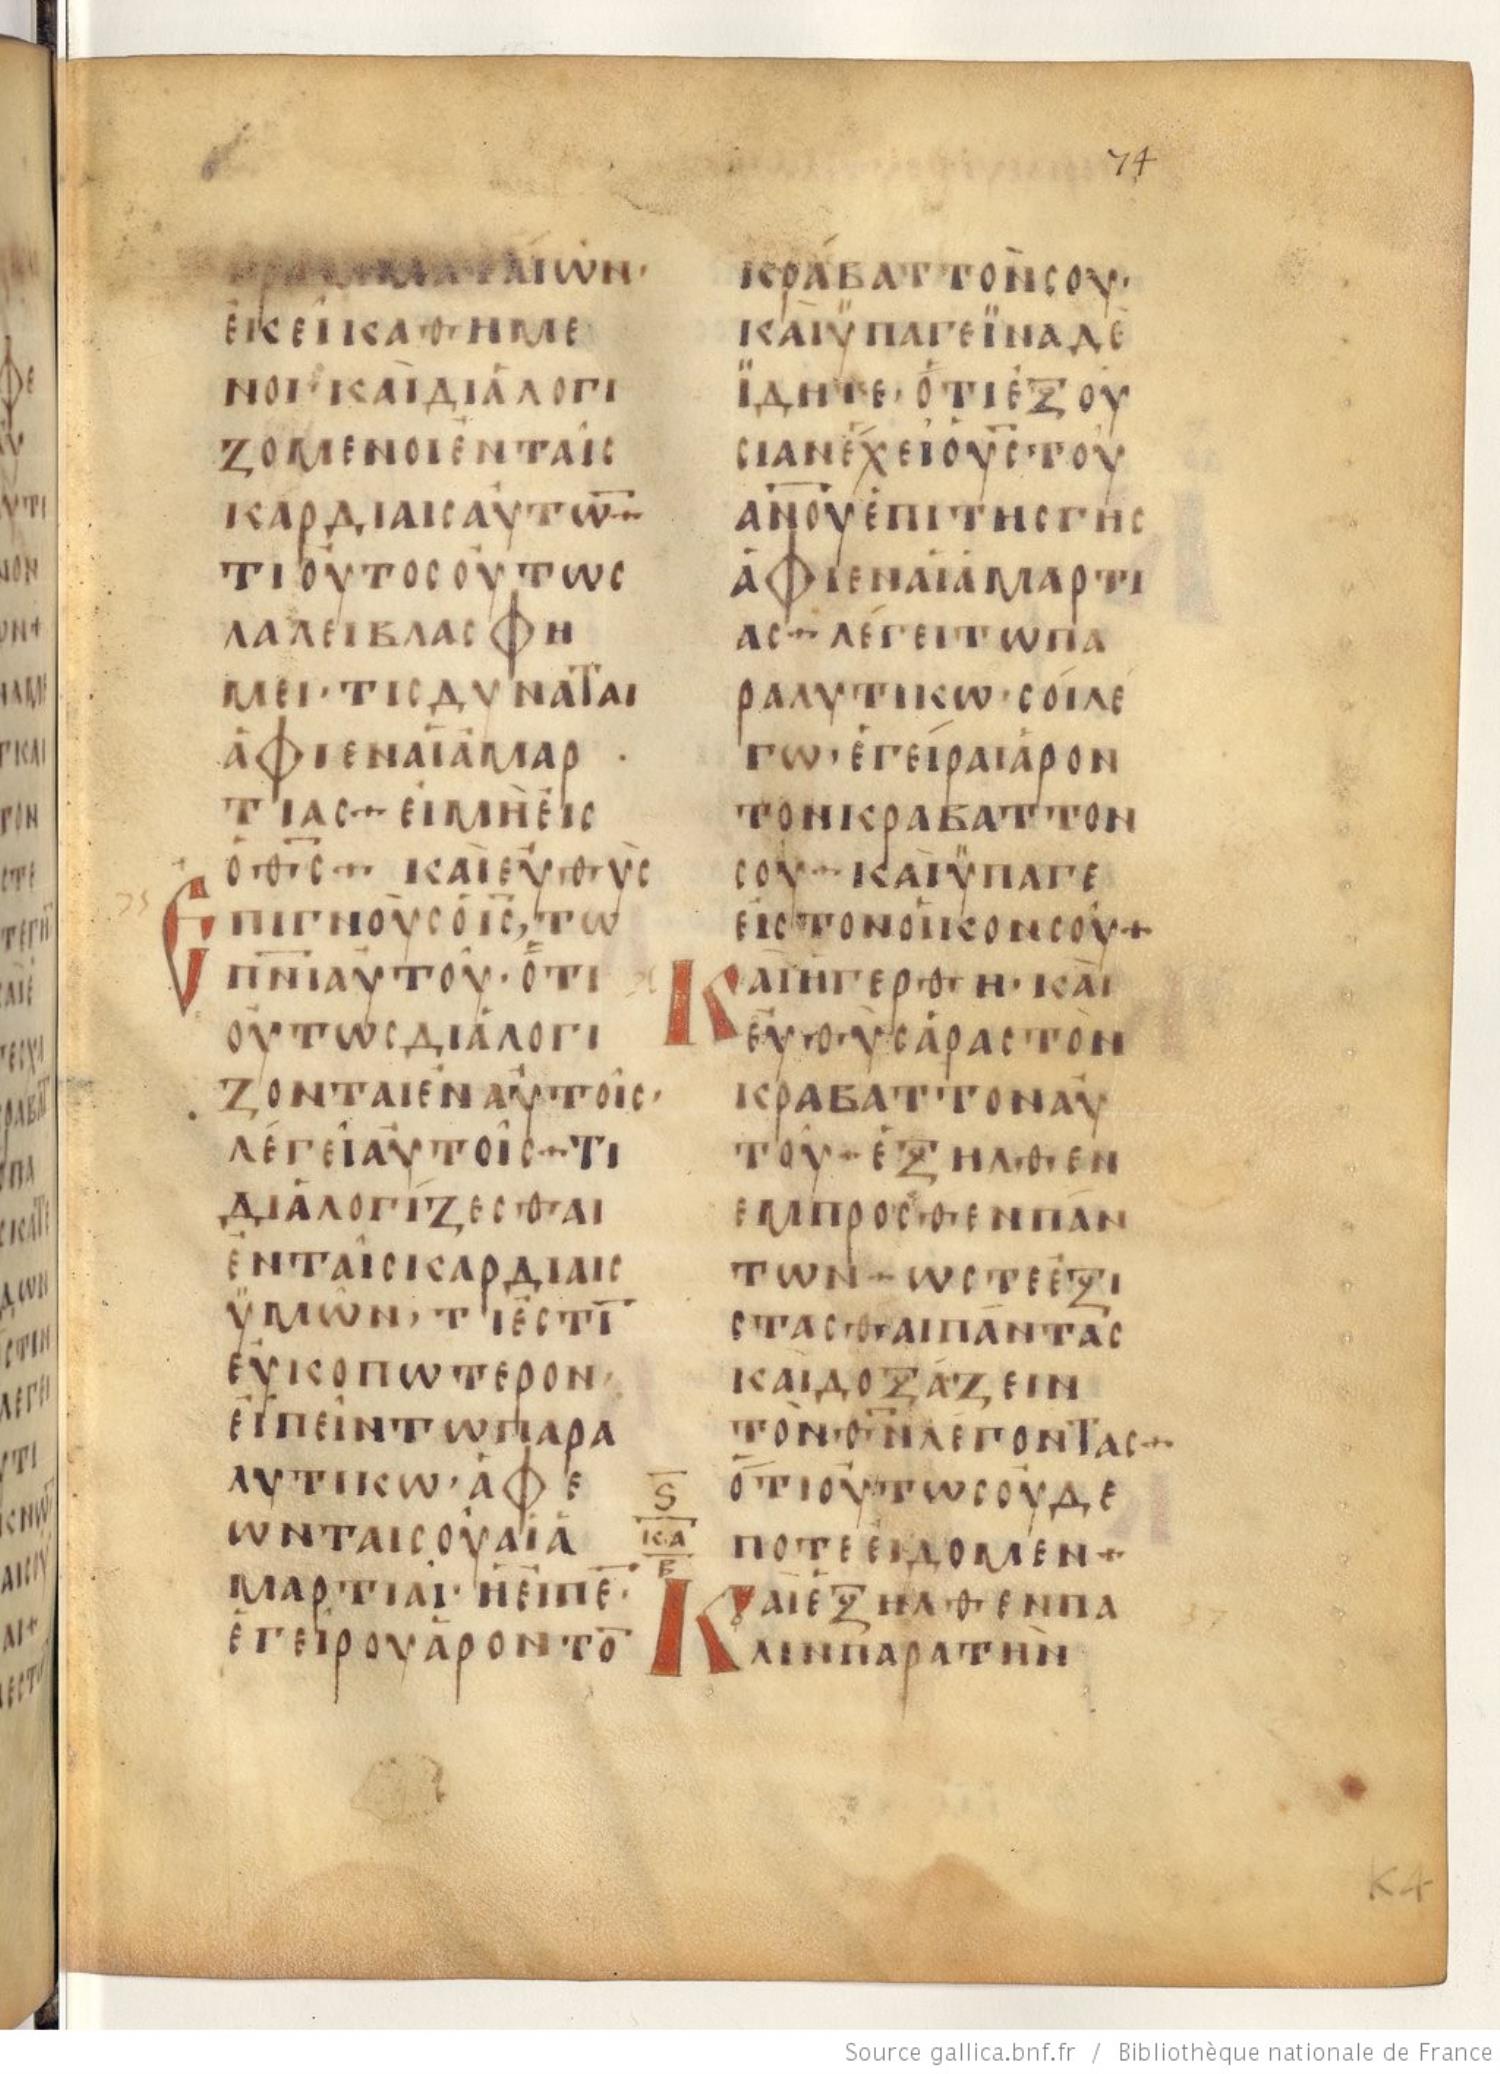 74
ἐκεῖ καθήμε
νοι· καὶ διαλογι
ζόμενοι ἐν ταῖς
καρδίαις αὐτῶ̅+
τί οὗτος οὕτως
λαλεῖ βλασφη
μεῖ· τίς δύναται
ἀφιέναι ἁμαρ
τίας + εἰ μὴ εἷς
ὁ θ̅ς̅ + καὶ εὐθὺς
Ἐπιγνοὺς ὁ ι̅ς̅, τω
π̅ν̅ι̅ αὐτοῦ· ὅτι
οὕτως διαλογί
ζονται ἐν αὐτοῖς·
λέγει αὐτοῖς + τί
διαλογίζεσθαι
ἐν ταῖς καρδίαις
ὑμῶν, τί ἐστι̅
εὐκοπώτερον·
εἰπεῖν τω παρα
λυτικω· ἀφέ
ωνται σου αἱ ἁ
μαρτίαι· ἢ εἰπε̅·
ἐγείρου ἆρον τὸ̅
κράβαττόν σου·
καὶ ὕπαγε ἵνα δὲ
ἴδητε· ὅτι ἐξου
σίαν ἔχει ὁ υ̅ς̅ τοῦ
α̅ν̅ο̅υ̅ ἐπὶ τῆς γῆς
ἀφιέναι ἁμαρτί
ας + λέγει τω πα
ραλυτικω· σοὶ λέ
γω· ἔγειραι ἆρον
τὸν κράβαττόν
σου + καὶ ὕπαγε
εἰς τὸν οἶκόν σου +
Καὶ ἠγέρθη· καὶ
εὐθὺς ἄρας τὸν
κράβαττον αὐ
τοῦ + ἐξῆλθεν
ἔμπροσθεν πάν
των + ὥστε ἐξί
στασθαι πάντας
καὶ δοξάζειν
τὸν θ̅ν̅ λέγοντας +
ὅτι οὕτως οὐδέ
ποτε εἴδομεν +
Ϛ
ΚΑ
Β
Καὶ ἐξῆλθεν πά
λιν παρὰ τὴν
K4
Source gallica.bnf.fr / Bibliothèque nationale de France